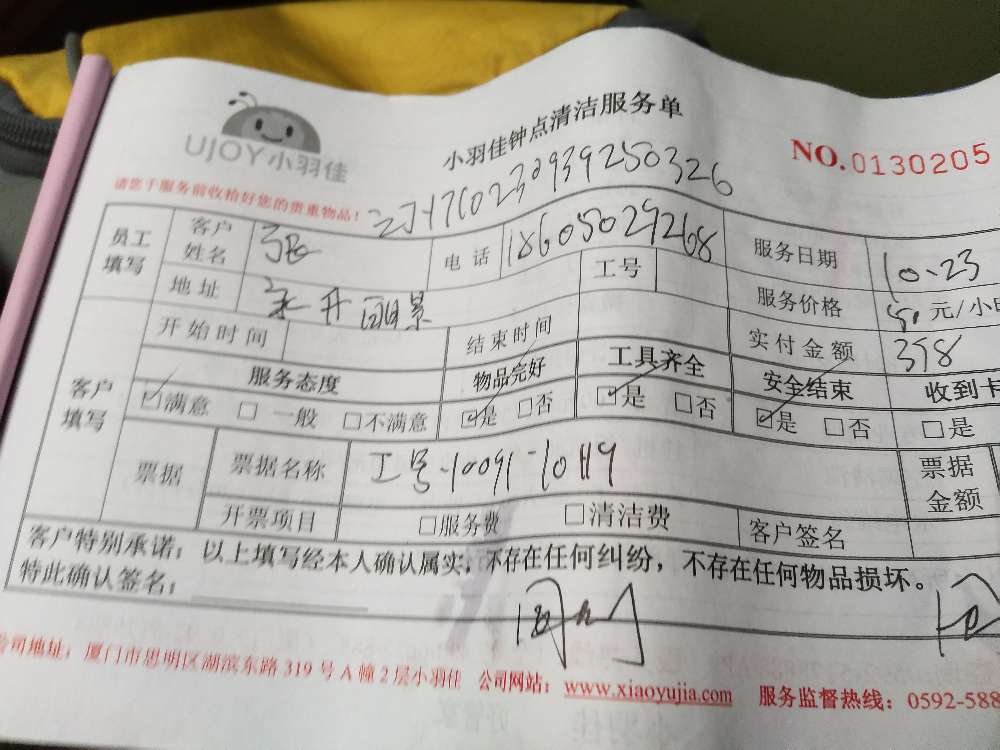 UJOY小羽佳
小羽佳钟点清洁服务单
NO.0130205
请您于服务前收拾好您的贵重物品!
员工填写 客户姓名 电话 18605029268 服务日期 10-23
地址 工号 服务价格 元/小
开始时间 结束时间 实付金额 358
客户填写 服务态度 物品完好 工具齐全 安全结束 收到卡
☑满意 □一般 □不满意 ☑是 □否 ☑是 □否 ☑是 □否 □是
票据 票据名称 工号-10091-10119 票据金额
开票项目 □服务费 □清洁费 客户签名
客户特别承诺:以上填写经本人确认属实,不存在任何纠纷,不存在任何物品损坏。
特此确认签名:
公司地址:厦门市思明区湖滨东路319号A幢2层小羽佳 公司网站:www.xiaoyujia.com 服务监督热线:0592-588